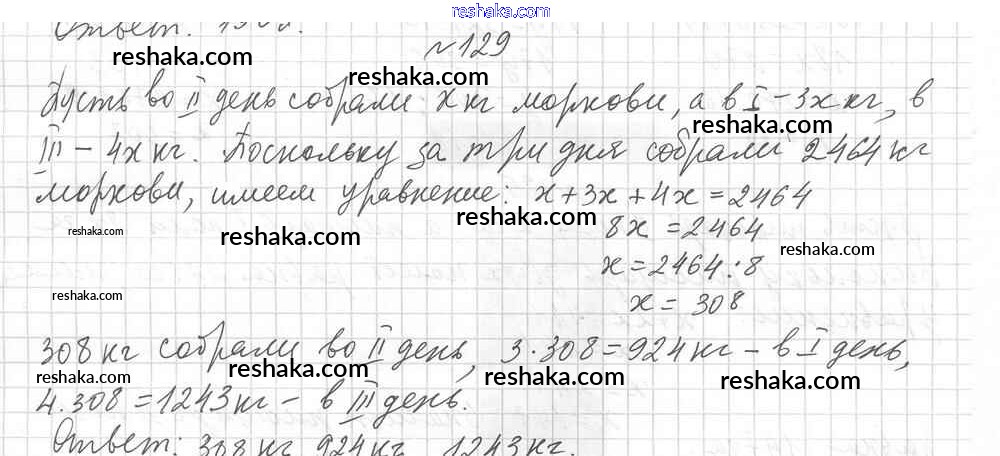 reshaka.com
Ответ:
reshaka.com
№129
reshaka.com
Пусть во II день собрали x кг моркови, а в I – 3x кг, в
reshaka.com
III – 4x кг. Поскольку за три дня собрали 2464 кг
reshaka.com
моркови, имеем уравнение: x+3x+4x=2464
reshaka.com
reshaka.com
reshaka.com
8x=2464
reshaka.com
x=2464:8
reshaka.com
x=308
308 кг собрали во II день, 3·308=924 кг – в I день,
reshaka.com
reshaka.com
reshaka.com
reshaka.com
4.308=1243 кг – в III день.
Ответ: 308 кг, 924 кг, 1243 кг.